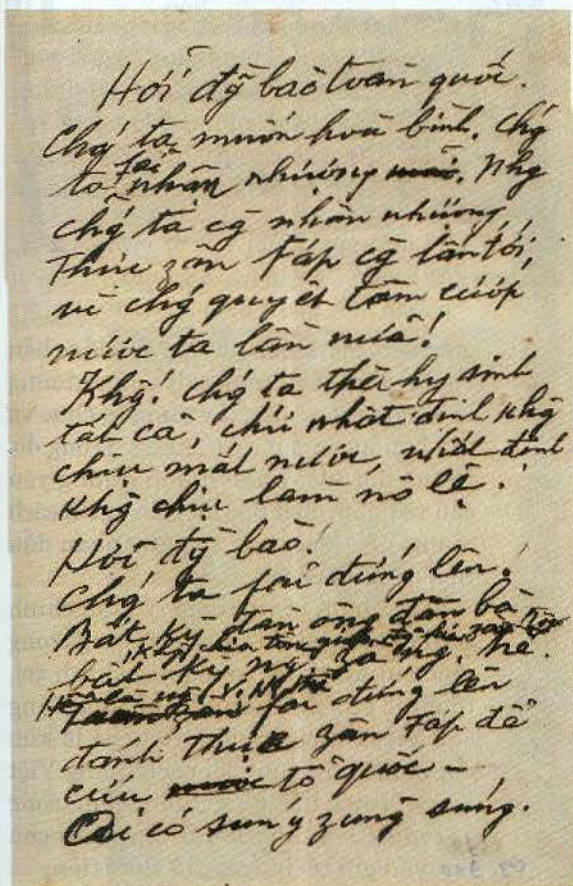 Hỡi đg̃ bào toàn quốc.
Chǵ ta muốn hoà bình, chǵ
ta fải nhân nhượng. Nhg
chǵ ta cg̃ nhân nhượng,
thực zân Fáp cg̃ lấn tới,
vì chǵ quyết tâm cướp
nước ta lần nữa!
Khg! chǵ ta thà hy sinh
tất cả, chứ nhất định khg
chịu mất nước, nhất định
khg chịu làm nô lệ.
Hỡi đg̀ bào!
Chǵ ta fải đứng lên!
Bất kỳ đàn ông đàn bà
bất kỳ ng zà ng. trẻ.
khg chia tôn záo
Hễ là ng V.N. thì fải đứng lên
đánh thực zân Fáp để
cứu tổ quốc –
Ai có súng zùng súng.